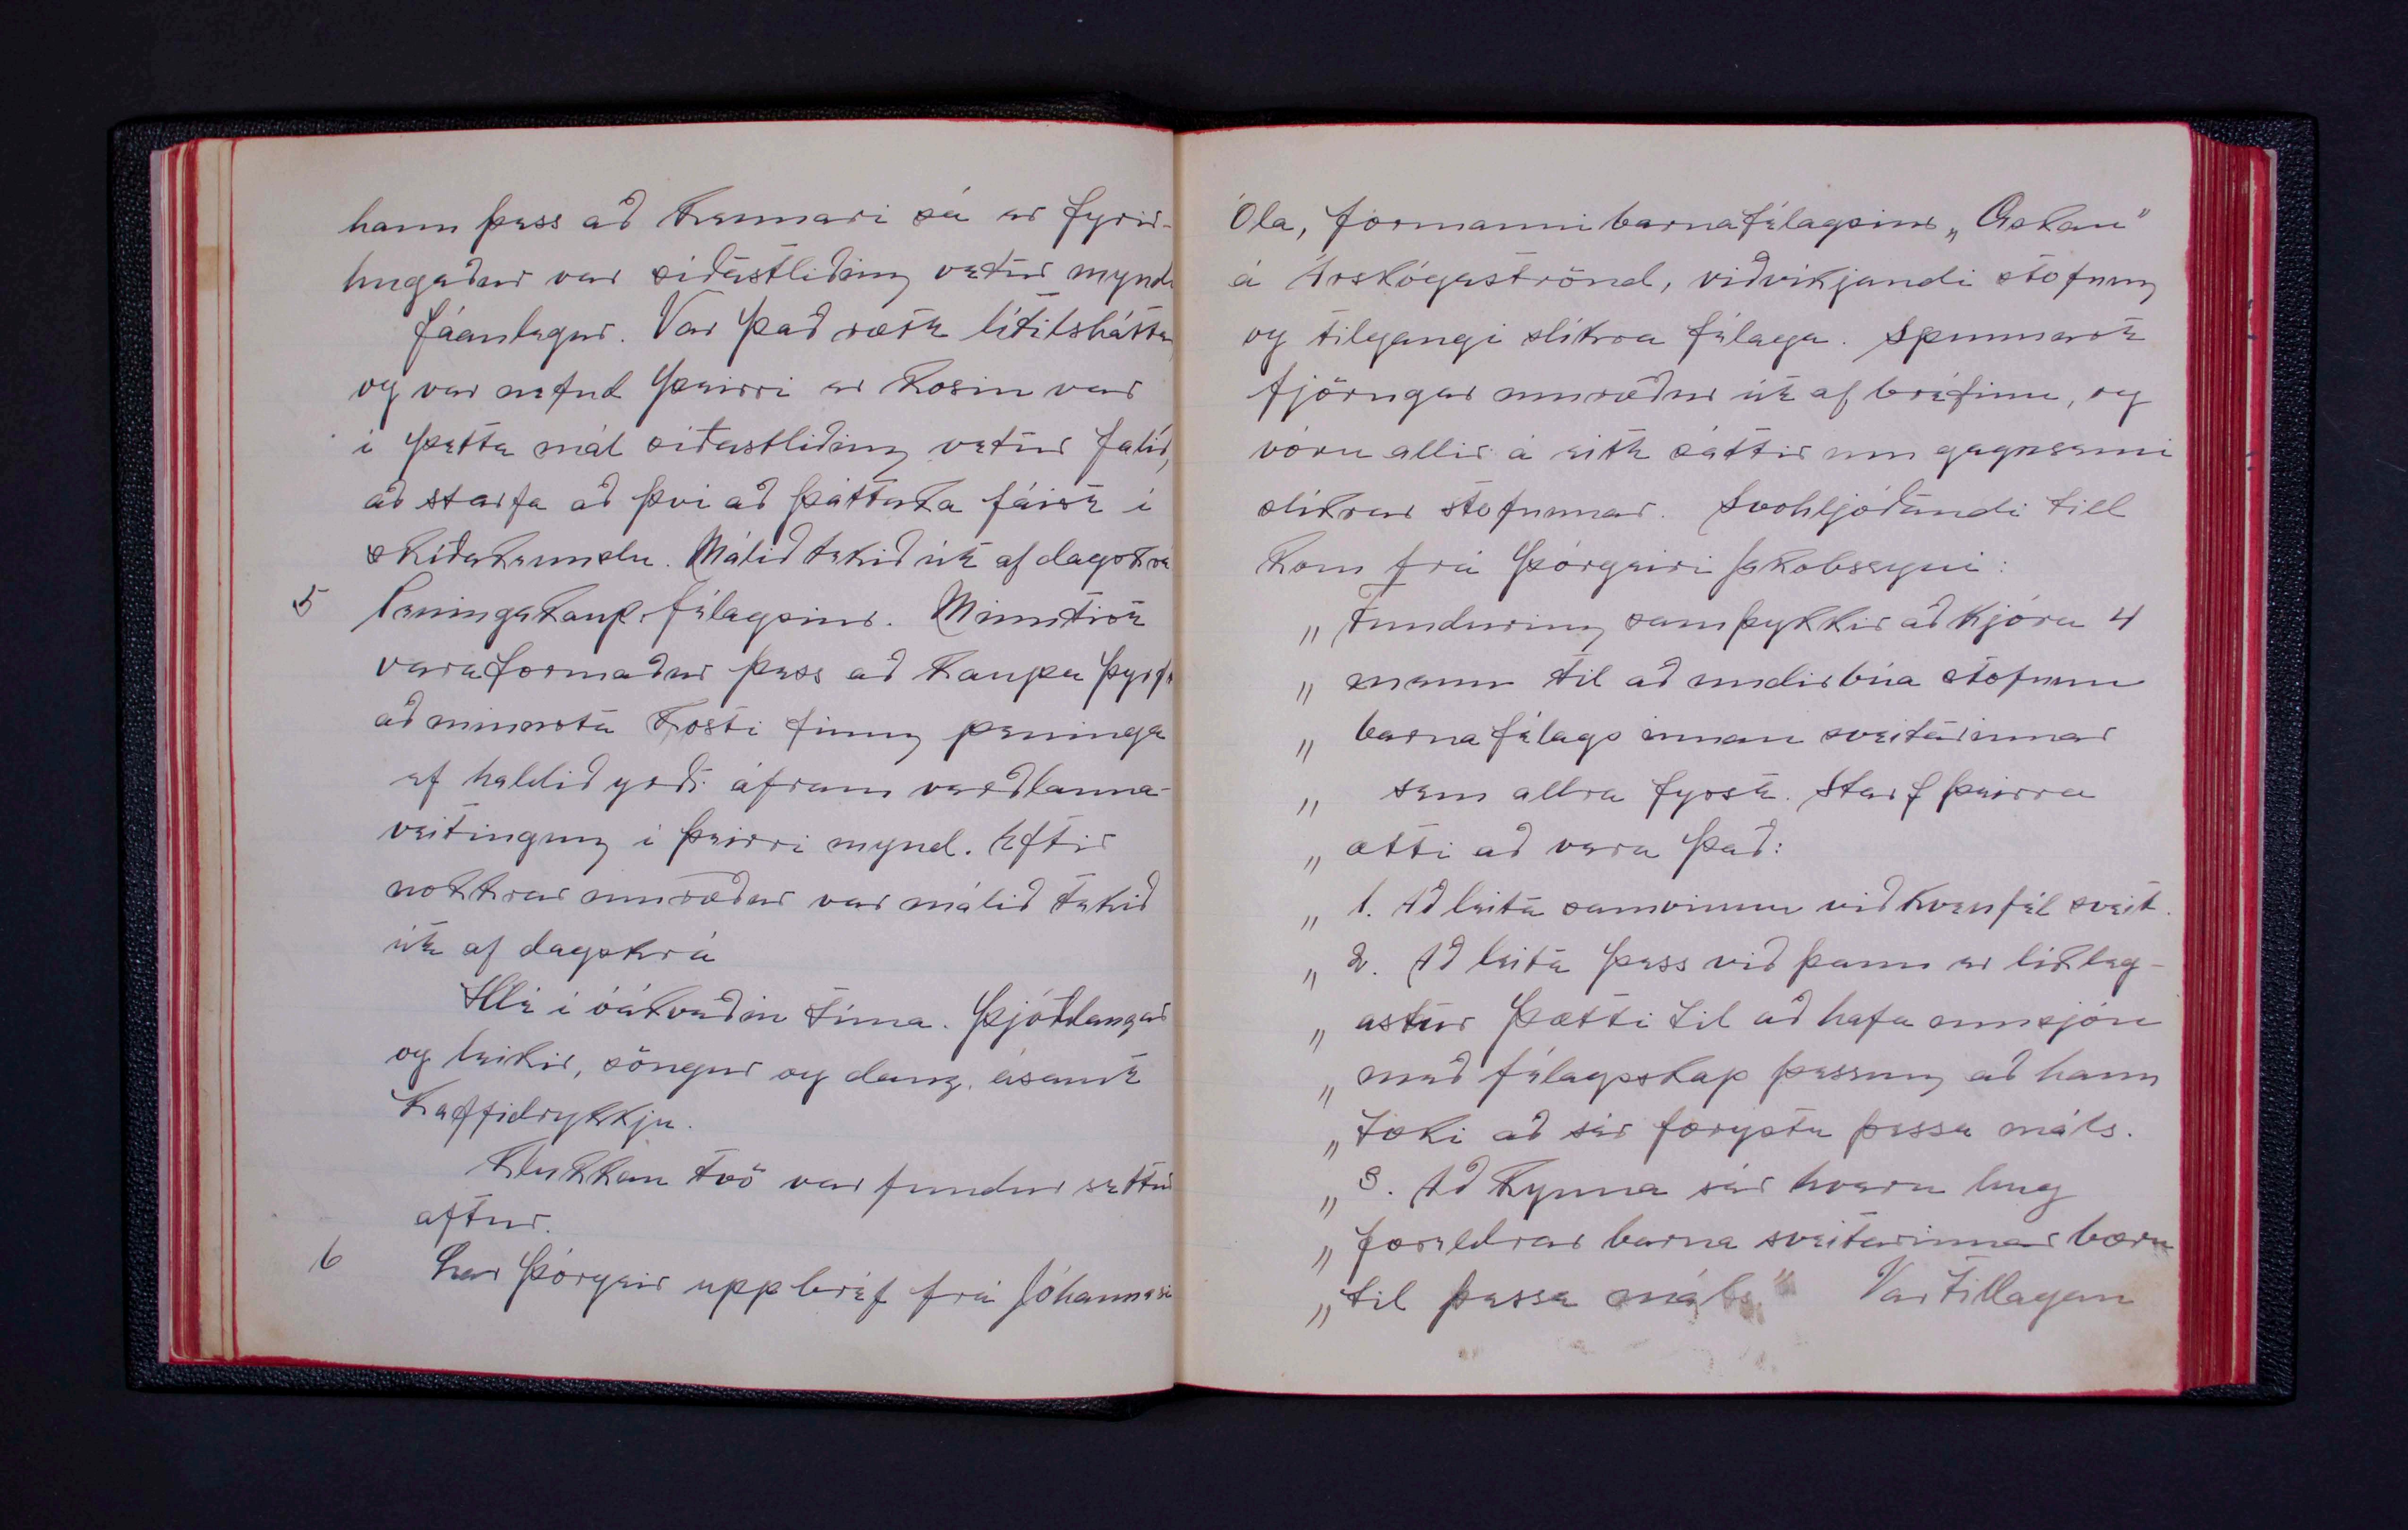 hann þess að kennari sá er fyrir-
hugaður var síðastliðinn vetur mynd
fáanlegur. Var það rætt lítilsháttar
og var nefnd þeirri er kosin var
í þetta mál síðastliðinn vetur falið,
að starfa að því að þátttaka fáist í
skíðakennslu. Málið tekið út af dagskrá
5 Peningakaup félagsins. Minntist
varaformaður þess að kaupa þyrft
að minnsta kosti fimm peninga
ef haldið yrði áfram verðlauna-
veitingum í þeirri mynd. Eftir
nokkrar umræður var málið tekið
út af dagskrá
Hlé í óákveðin tíma. Þjóðdansar
og leikir, söngur og danz. ásamt
kaffidrykkju.
Klukkan tvö var fundur settur
aftur.
6 Las Þórgeir upp bréf frá Jóhannesi
Óla, formanni barnafélagsins „Askan"
á Árskógaströnd, viðvíkjandi stofnun
og tilgangi slíkra félaga. Spunnust
fjörugar umræður út af bréfinu, og
vóru allir á eitt sáttir um gagnsemi
slíkrar stofnunar. Svohljóðandi till
kom frá Þórgeiri Jakobssyni:
„ Fundurinn samþykkir að kjósa 4
„ menn til að undirbúa stofnun
„ barnafélags innan sveitarinnar
„ sem allra fyrst. Starf þeirra
„ ætti að vera það:
„ 1. Að leita samvinnu við kvenfél sveit.
„ 2. Að leita þess við þann er líkleg-
„ astur þætti til að hafa umsjón
„ með félagsskap þessum að hann
„ tæki að sér forystu þessa máls.
„ 3. Að kynna sér hvern hug
„ foreldrar barna sveitarinnar bæru
„ til þessa máls." Var tillagan